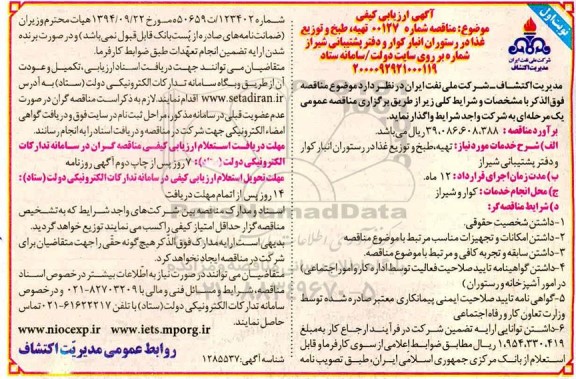 نوبت اول
شرکت ملی نفت ایران
مدیریت اکتشاف
آگهی ارزیابی کیفی
موضوع: مناقصه شماره ۰۰۱۲۷ تهیه، طبخ و توزیع
غذا در رستوران انبار کوار و دفتر پشتیبانی شیراز
شماره بر روی سایت دولت / سامانه ستاد
۲۰۰۰۰۹۲۹۲۱۰۰۰۱۱۹
مدیریت اکتشاف - شرکت ملی نفت ایران در نظر دارد موضوع مناقصه
فوق الذکر با مشخصات و شرایط کلی زیر از طریق برگزاری مناقصه عمومی
یک مرحله‌ای به شرکت واجد شرایط واگذار نماید.
برآورد مناقصه: ۳۹.۰۸۶.۶۰۸.۳۸۸ ریال می‌باشد.
الف) شرح خدمات مورد نیاز: تهیه، طبخ و توزیع غذا در رستوران انبار کوار
و دفتر پشتیبانی شیراز
ب) مدت زمان اجرای قرارداد: ۱۲ ماه.
ج) محل انجام خدمات: کوار و شیراز
د) شرایط مناقصه‌گر:
۱-داشتن شخصیت حقوقی.
۲-داشتن امکانات و تجهیزات مناسب مرتبط با موضوع مناقصه
۳-داشتن سابقه و تجربه کافی و مرتبط با موضوع مناقصه.
۴-داشتن گواهینامه تایید صلاحیت فعالیت توسط اداره کار و امور اجتماعی (
در امور آشپزخانه و رستوران)
۵-گواهی نامه تایید صلاحیت ایمنی پیمانکاری معتبر صادره شده توسط
وزارت تعاون کار و رفاه اجتماعی
۶-داشتن توانایی ارایه تضمین شرکت در فرآیند ارجاع کار به مبلغ
۱.۹۵۴.۳۳۰.۴۱۹ ریال مطابق ضوابط اعلامی از سوی کارفرما و قابل
استعلام از بانک مرکزی جمهوری اسلامی ایران، طبق تصویب نامه
شماره ۱۲۳۴۰۲/ت۵۰۶۵۹ه مورخ ۱۳۹۴/۰۹/۲۲ هیات محترم وزیران
(ضمانت‌نامه‌های صادره از پُست بانک قابل قبول نمی‌باشد) و در صورت برنده
شدن ارایه تضمین انجام تعهدات طبق ضوابط کارفرما.
متقاضیان می‌توانند جهت دریافت اسناد ارزیابی، تکمیل و عودت
آن از طریق وبگاه سامانه تدارکات الکترونیکی دولت (ستاد) به آدرس
www.setadiran.ir اقدام نمایند لازم به ذکر است مناقصه گران در صورت
عدم عضویت قبلی در سامانه مذکور، مراحل ثبت نام در سایت فوق و دریافت گواهی
امضاء الکترونیکی جهت شرکت در مناقصه و دریافت اسناد را به انجام رسانند.
مهلت دریافت استعلام ارزیابی کیفی مناقصه گران در سامانه تدارکات
الکترونیکی دولت (ستاد): ۷ روز پس از چاپ دوم آگهی روزنامه
مهلت تحویل استعلام ارزیابی کیفی در سامانه تدارکات الکترونیکی دولت (ستاد):
۱۴ روز پس از اتمام مهلت دریافت
اسناد و مدارک مناقصه بین شرکت‌های واجد شرایط که به تشخیص
مناقصه گزار حداقل امتیاز کیفی را کسب می نمایند توزیع خواهد گردید.
بدیهی است ارایه مدارک فوق الذکر هیچ گونه حقی را جهت متقاضیان برای
شرکت در مناقصه ایجاد نخواهد کرد.
متقاضیان می توانند در صورت نیاز به اطلاعات بیشتر در خصوص اسناد
مناقصه، شرایط و مسائل فنی و مالی با ۸۲۷۰۳۲۰۹-۰۲۱ و در خصوص
سامانه تدارکات الکترونیکی دولت (ستاد) با تلفن ۶۱۶۲۲۲۱۷-۰۲۱ تماس
حاصل نمایند.
www.niocexp.ir www.iets.mporg.ir
شناسه آگهی: ۱۲۸۵۵۳۷
روابط عمومی مدیریت اکتشاف